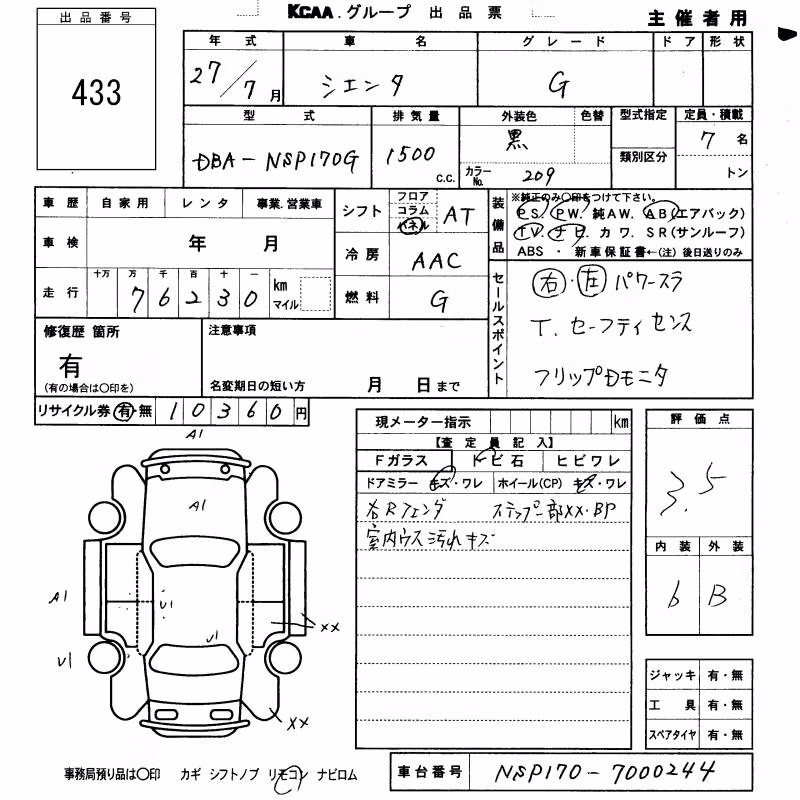 KCAA.グループ 出品票
主催者用
出品番号
433
年式 車名 グレード ドア 形状
27/7月 シエンタ G
型式 排気量 外装色 色替 型式指定 定員・積載
DBA-NSP170G 1500 C.C. 黒 7名
カラーNo. 209 類別区分 トン
車歴 自家用 レンタ 事業.営業車
車検 年 月
走行 十万 万 千 百 十 一 km マイル
76230
シフト フロア コラム パネル AT
冷房 AAC
燃料 G
装備品
※純正のみ○印をつけて下さい。
PS. PW. 純AW. AB(エアバック)
TV. ナビ. カワ. SR(サンルーフ)
ABS ・ 新車保証書←(注) 後日送りのみ
セールスポイント
右・左 パワースラ
T. セーフティセンス
フリップDモニタ
修復歴 箇所
有
(有の場合は○印を)
注意事項
名変期日の短い方 月 日まで
リサイクル券 有・無 10360円
現メーター指示 km
【査定員記入】
Fガラス トビ石 ヒビワレ
ドアミラー キズ・ワレ ホイール(CP) キズ・ワレ
右Rフェンダ ステップ一部XX・BP
室内ウス汚れキズ
評価点
3.5
内装 外装
6 B
ジャッキ 有・無
工具 有・無
スペアタイヤ 有・無
A1
A1
A1
U1
U1
XX
U1
XX
事務局預り品は○印 カギ シフトノブ リモコン ナビロム
車台番号 NSP170-7000244